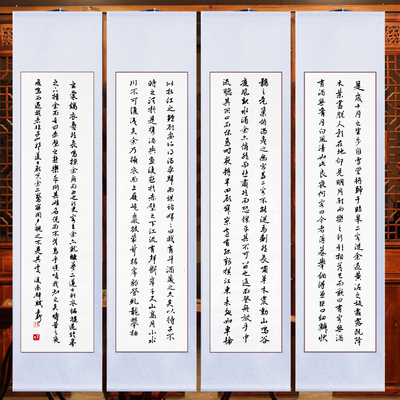 是歲十月之望步自雪堂將歸于臨皋二客從余過黃泥之坂霜露既降
木葉盡脫人影在地仰見明月顧而樂之行歌相答已而歎曰有客無酒
有酒無肴月白風清如此良夜何客曰今者薄暮舉網得魚巨口細鱗狀
似松江之鱸顧安所得酒乎歸而謀諸婦婦曰我有斗酒藏之久矣以待子不
時之須於是攜酒與魚復遊於赤壁之下江流有聲斷岸千尺山高月小水
川不可復識矣余乃攝衣而上履巉巖披蒙茸踞虎豹登虬龍攀栖
鶻之危巢俯馮夷之幽宮蓋二客不能從焉劃然長嘯草木震動山鳴谷
應風起水涌余亦悄然而悲肅然而恐凜乎其不可留也返而登舟放乎中
流聽其所止而休焉時夜將半四顧寂寥適有孤鶴橫江東來翅如車輪
玄裳縞衣戛然長鳴掠余舟而西也須臾客去余亦就睡夢二道士羽衣翩躚過臨皋
之下揖余而言曰赤壁之遊樂乎問其姓名俯而不答嗚呼噫嘻我知之矣疇昔之夜
飛鳴而過我者非子也耶道士顧笑余亦驚寤開戶視之不見其處 後赤壁賦